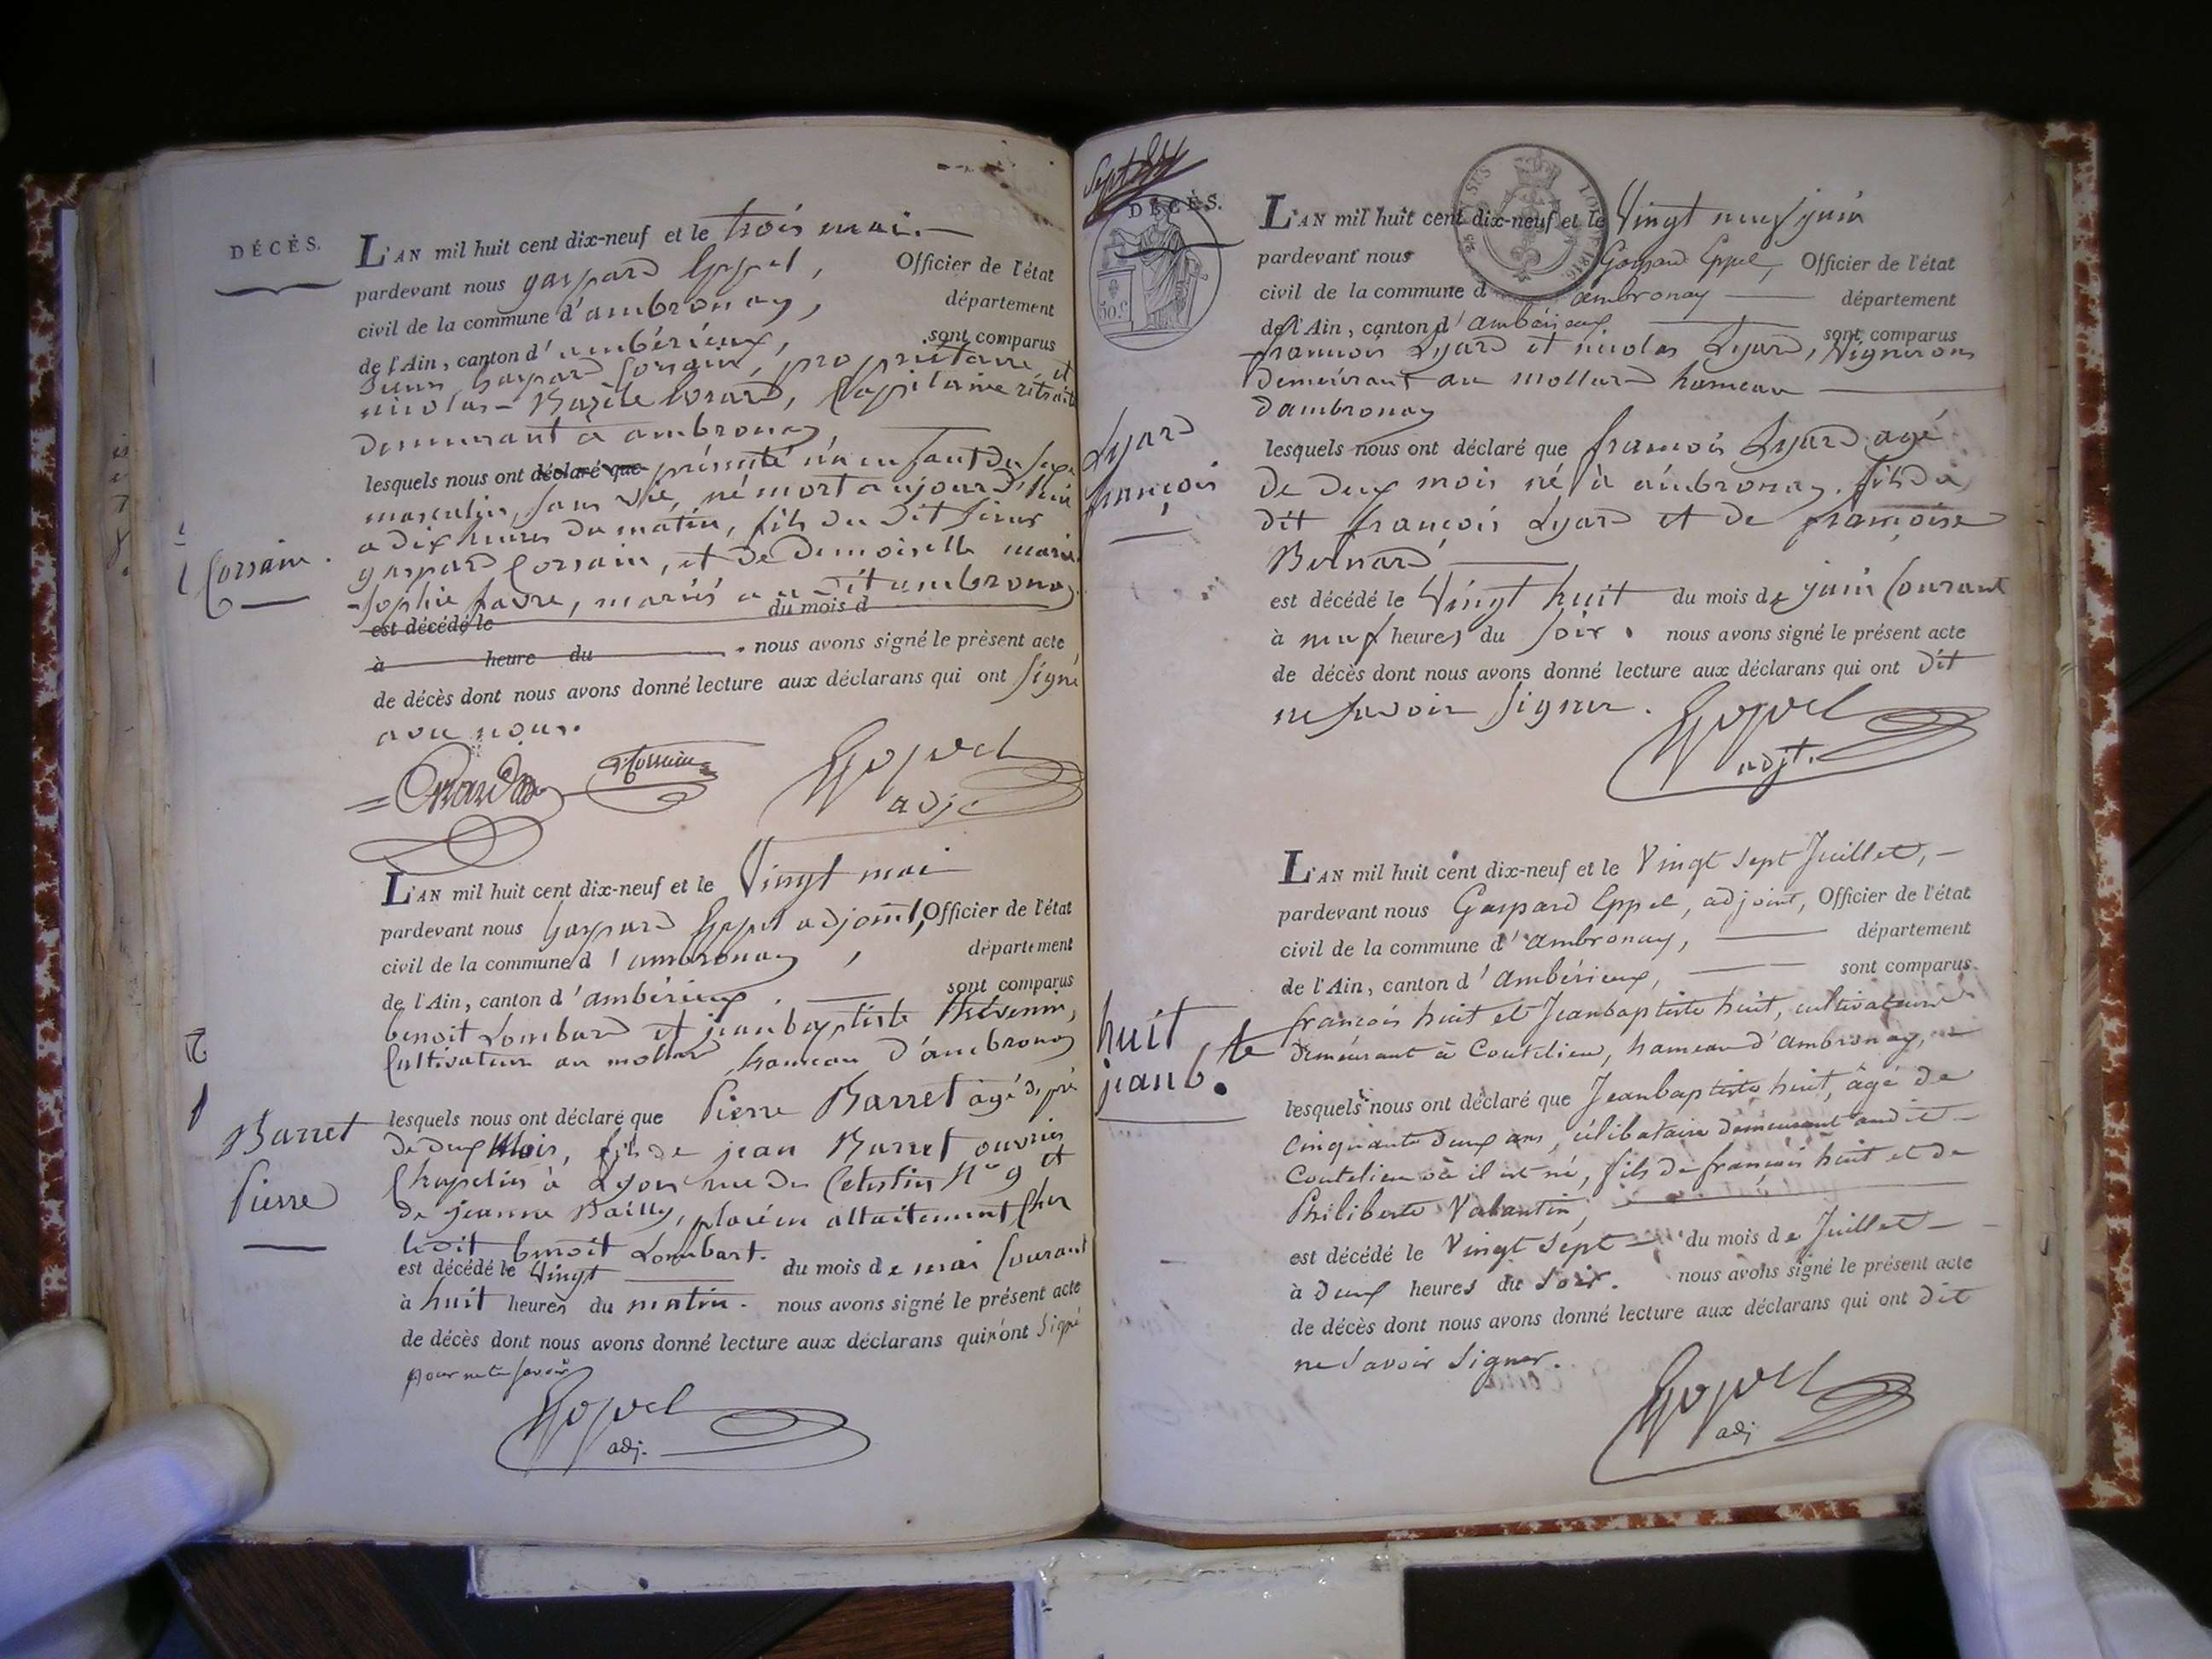 DÉCÈS.
L'AN mil huit cent dix-neuf et le trois mai.
pardevant nous gaspard Eppel, Officier de l'état
civil de la commune d'ambronay, département
de l'Ain, canton d'ambérieux, sont comparus
Sieurs Gaspard Corsain, propriétaire et
nicolas Bazile Evrard, Capitaine retraité
demeurant à ambronay
lesquels nous ont déclaré que présenté un enfant du sexe
masculin, sans vie, né mort aujourd'hui
a dix heures du matin, fils du dit sieur
gaspard Corsain, et de Demoiselle marie
sophie favre, mariés a dit ambronay
est décédé le du mois d
à heure du nous avons signé le présent acte
de décès dont nous avons donné lecture aux déclarans qui ont signé
avec nous.
Corsain
Eppel
adj
Corsain.
L'AN mil huit cent dix-neuf et le Vingt mai
pardevant nous Gaspard Eppel adjoint, Officier de l'état
civil de la commune d'ambronay, département
de l'Ain, canton d'ambérieux. sont comparus
benoit Lombard et jean baptiste Thévenin,
Cultivateurs au mollard, hameau d'ambronay
lesquels nous ont déclaré que Pierre Barret agé de près
de deux Mois, fils de jean Barret ouvrier
Chapelier à Lyon rue des Celestins N° 9 et
de jeanne Bailly, placé en allaitement chez
ledit benoit Lombart.
est décédé le Vingt du mois de mai Courant
à huit heures du matin. nous avons signé le présent acte
de décès dont nous avons donné lecture aux déclarans qui n'ont signé
pour ne le savoir
Eppel
adj.
2
Barret
Pierre
DÉCÈS.
50.c
L'AN mil huit cent dix-neuf et le Vingt neuf juin
pardevant nous Gaspard Eppel, Officier de l'état
civil de la commune d ambronay département
de l'Ain, canton d'ambérieux sont comparus
francois Lyard et nicolas Lyard, Vignerons
demeurant au mollard hameau
dambronay
lesquels nous ont déclaré que francois Lyard agé
de deux mois né à ambronay. fils du
dit françois Lyard et de françoise
Bernard
est décédé le Vingt huit du mois de juin Courant
à neuf heures du soir. nous avons signé le présent acte
de décès dont nous avons donné lecture aux déclarans qui ont dit
ne savoir signer.
Eppel
adjt.
Lyard
françois
L'AN mil huit cent dix-neuf et le Vingt sept Juillet,
pardevant nous Gaspard Eppel, adjoint, Officier de l'état
civil de la commune d'ambronay, département
de l'Ain, canton d'Ambérieux, sont comparus
francois huit et Jeanbaptiste huit, cultivateurs
demeurant à Coutelieu, hameau d'ambronay,
lesquels nous ont déclaré que Jeanbaptiste huit, âgé de
cinquante deux ans, célibataire demeurant audit
Coutelieu où il est né, fils de françois huit et de
Philiberte Valantin,
est décédé le Vingt sept du mois de Juillet
à deux heures du soir. nous avons signé le présent acte
de décès dont nous avons donné lecture aux déclarans qui ont dit
ne savoir signer.
Eppel
adj
huit
jean b.te